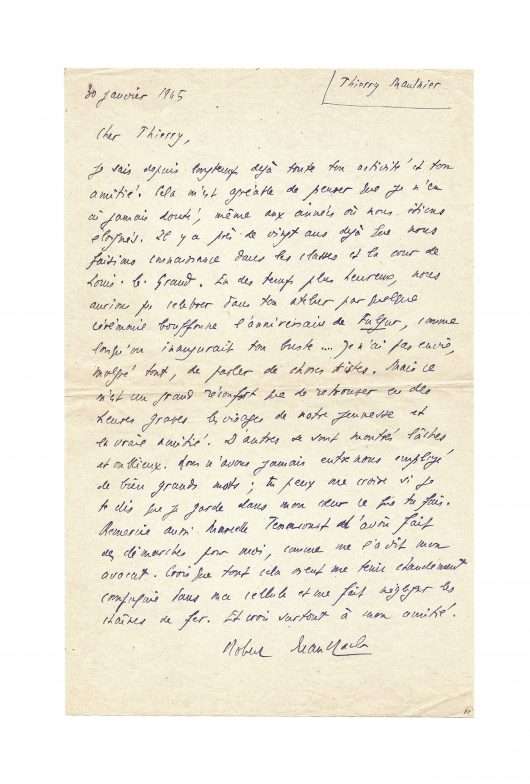 Thierry Maulnier
30 janvier 1945
Cher Thierry,
Je sais depuis longtemps déjà toute ton activité et ton
amitié. Cela m'est agréable de penser que je n'en
ai jamais douté, même aux années où nous étions
éloignés. Il y a près de vingt ans déjà que nous
faisions connaissance dans les classes et la cour de
Louis-le-Grand. En des temps plus heureux, nous
aurions pu célébrer dans ton atelier par quelque
cérémonie bouffonne l'anniversaire de Fulgur, comme
lorsqu'on inaugurait ton buste.... Je n'ai pas envie,
malgré tout, de parler de choses tristes. Mais ce
m'est un grand réconfort que de retrouver en des
heures graves les visages de notre jeunesse et
la vraie amitié. D'autres se sont montré lâches
et oublieux. Nous n'avons jamais entre nous employé
de bien grands mots ; tu peux me croire si je
te dis que je garde dans mon cœur ce que tu fais.
Remercie aussi Marcelle d'avoir fait
des démarches pour moi, comme me l'a dit mon
avocat. Crois que tout cela vient me tenir chaudement
compagnie dans ma cellule et me fait négliger les
chaînes de fer. Et crois surtout à mon amitié.
Robert